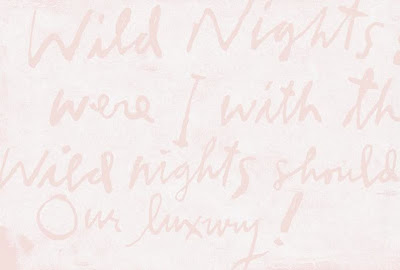 Wild Nights
were I with th
Wild nights should
Our luxury!